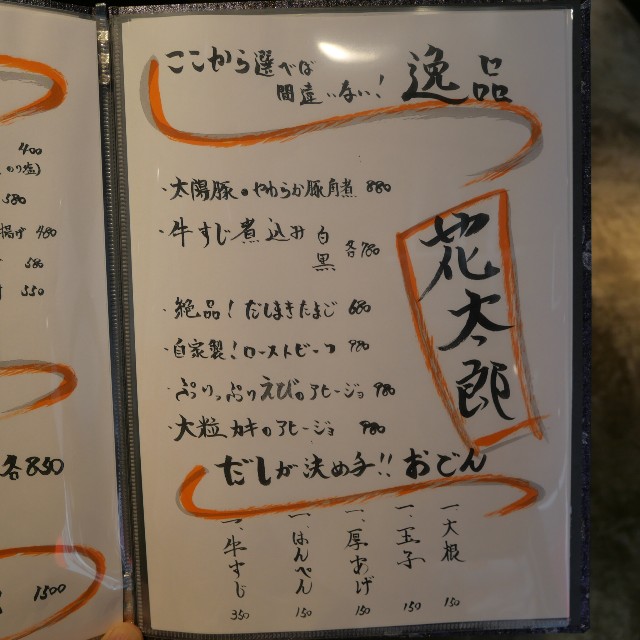 ここから選べば
間違いない! 逸品
・太陽豚のやわらか豚角煮 880
・牛すじ煮込み 白 黒 各780
・絶品!だしまきたまご 680
・自家製!ローストビーフ 980
・ぷりっぷりえびのアヒージョ 980
・大粒カキのアヒージョ 980
花太郎
だしが決め手!!おでん
一、大根 150
一、玉子 150
一、厚あげ 150
一、はんぺん 150
一、牛すじ 350
400
のり塩)
580
揚げ 480
580
550
各850
1500